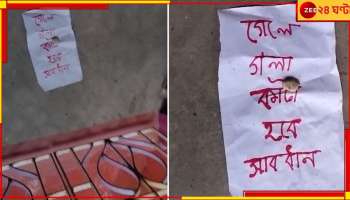 ZEE ২৪ ঘণ্টা
গেলে
গলা
কাটা
হবে
সাবধান
গেলে
গলা
কাটা
হবে
সাবধান